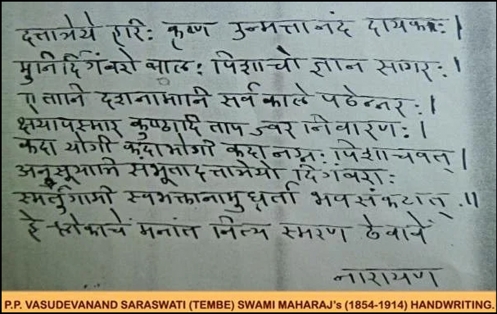 दत्तात्रेये हरिः कृष्ण उन्मत्तानंद दायकः।
मुनिर्दिगंबरो बालः पिशाचो ज्ञान सागरः।
एतानि दशनामानि सर्वकाले पठेन्नरः।
क्षयापस्मार कुष्ठादि ताप ज्वर निवारणः।
कदा योगी कदा भोगी कदा नग्नः पिशाचवत्।
अनुसूयामि सभूता दत्तात्रेयो दिगंबराः
स्मर्तुगामी स्वभक्तानामुध्दर्ता भवसंकटात्॥
हे श्लोकाचें मनांत नित्य स्मरण ठेवावें
नारायण
P.P. VASUDEVANAND SARASWATI (TEMBE) SWAMI MAHARAJ's (1854-1914) HANDWRITING.